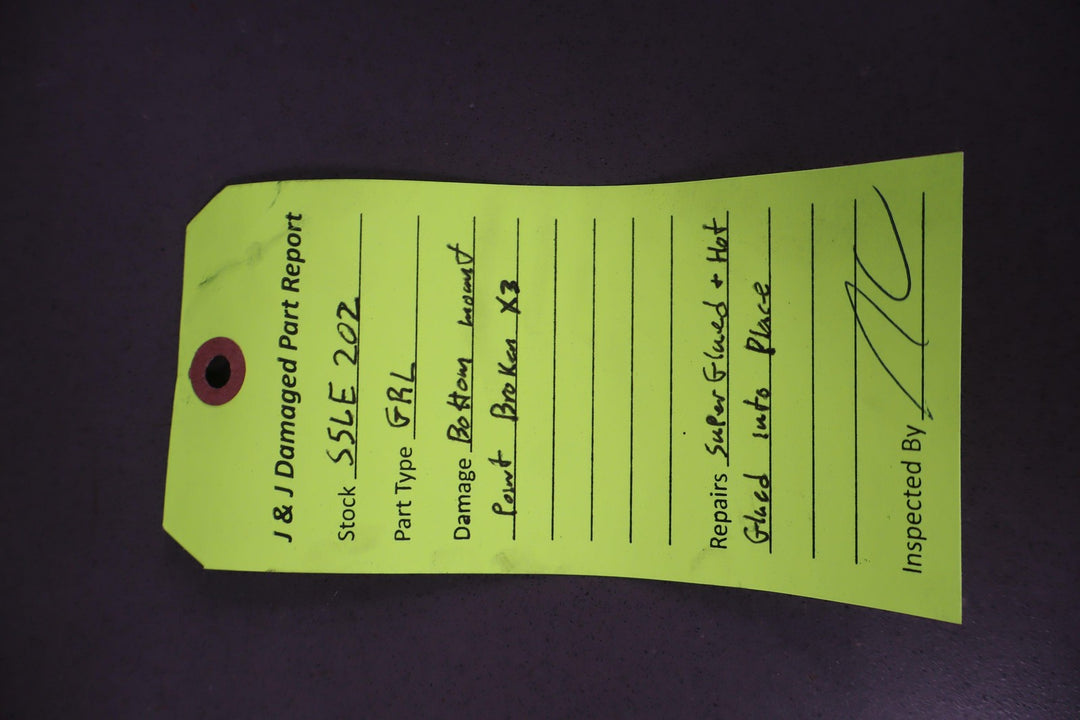 J & J Damaged Part Report
Stock SSLE 202
Part Type GRL
Damage Bottom mount
Point Broken X3
Repairs Super Glued + Hot
Glued into Place
Inspected By